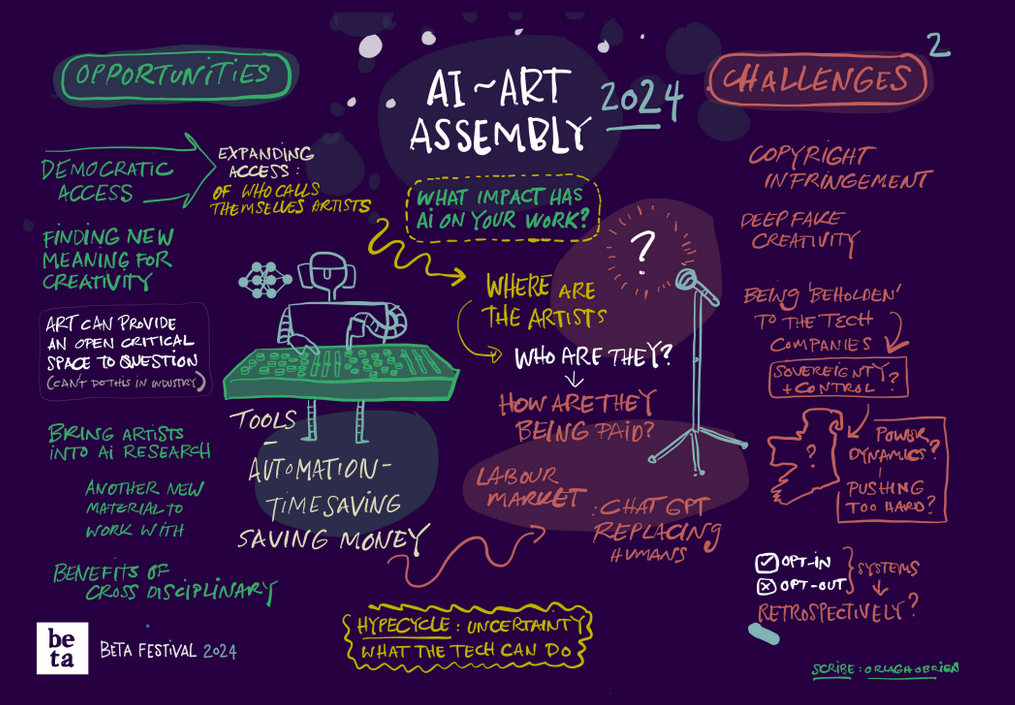 OPPORTUNITIES
AI ~ ART
ASSEMBLY
2024
CHALLENGES
2
DEMOCRATIC
ACCESS
EXPANDING
ACCESS:
OF WHO CALLS
THEMSELVES ARTISTS
FINDING NEW
MEANING FOR
CREATIVITY
ART CAN PROVIDE
AN OPEN CRITICAL
SPACE TO QUESTION
(CAN'T DO THIS IN INDUSTRY)
BRING ARTISTS
INTO Ai RESEARCH
ANOTHER NEW
MATERIAL TO
WORK WITH
BENEFITS OF
CROSS DISCIPLINARY
TOOLS
-
AUTOMATION-
TIMESAVING
SAVING MONEY
WHAT IMPACT HAS
Ai ON YOUR WORK?
WHERE ARE
THE ARTISTS
WHO ARE THEY?
HOW ARE THEY
BEING PAID?
?
LABOUR
MARKET
: CHAT GPT
REPLACING
HUMANS
HYPECYCLE: UNCERTAINTY
WHAT THE TECH CAN DO
COPYRIGHT
INFRINGEMENT
DEEP FAKE
CREATIVITY
BEING 'BEHOLDEN'
TO THE TECH
COMPANIES
SOVEREIGNTY
+ CONTROL?
?
POWER
DYNAMICS?
PUSHING
TOO HARD?
OPT-IN
OPT-OUT
SYSTEMS
RETROSPECTIVELY?
be
ta
BETA FESTIVAL 2024
SCRIBE: ORLAGH OBRIEN